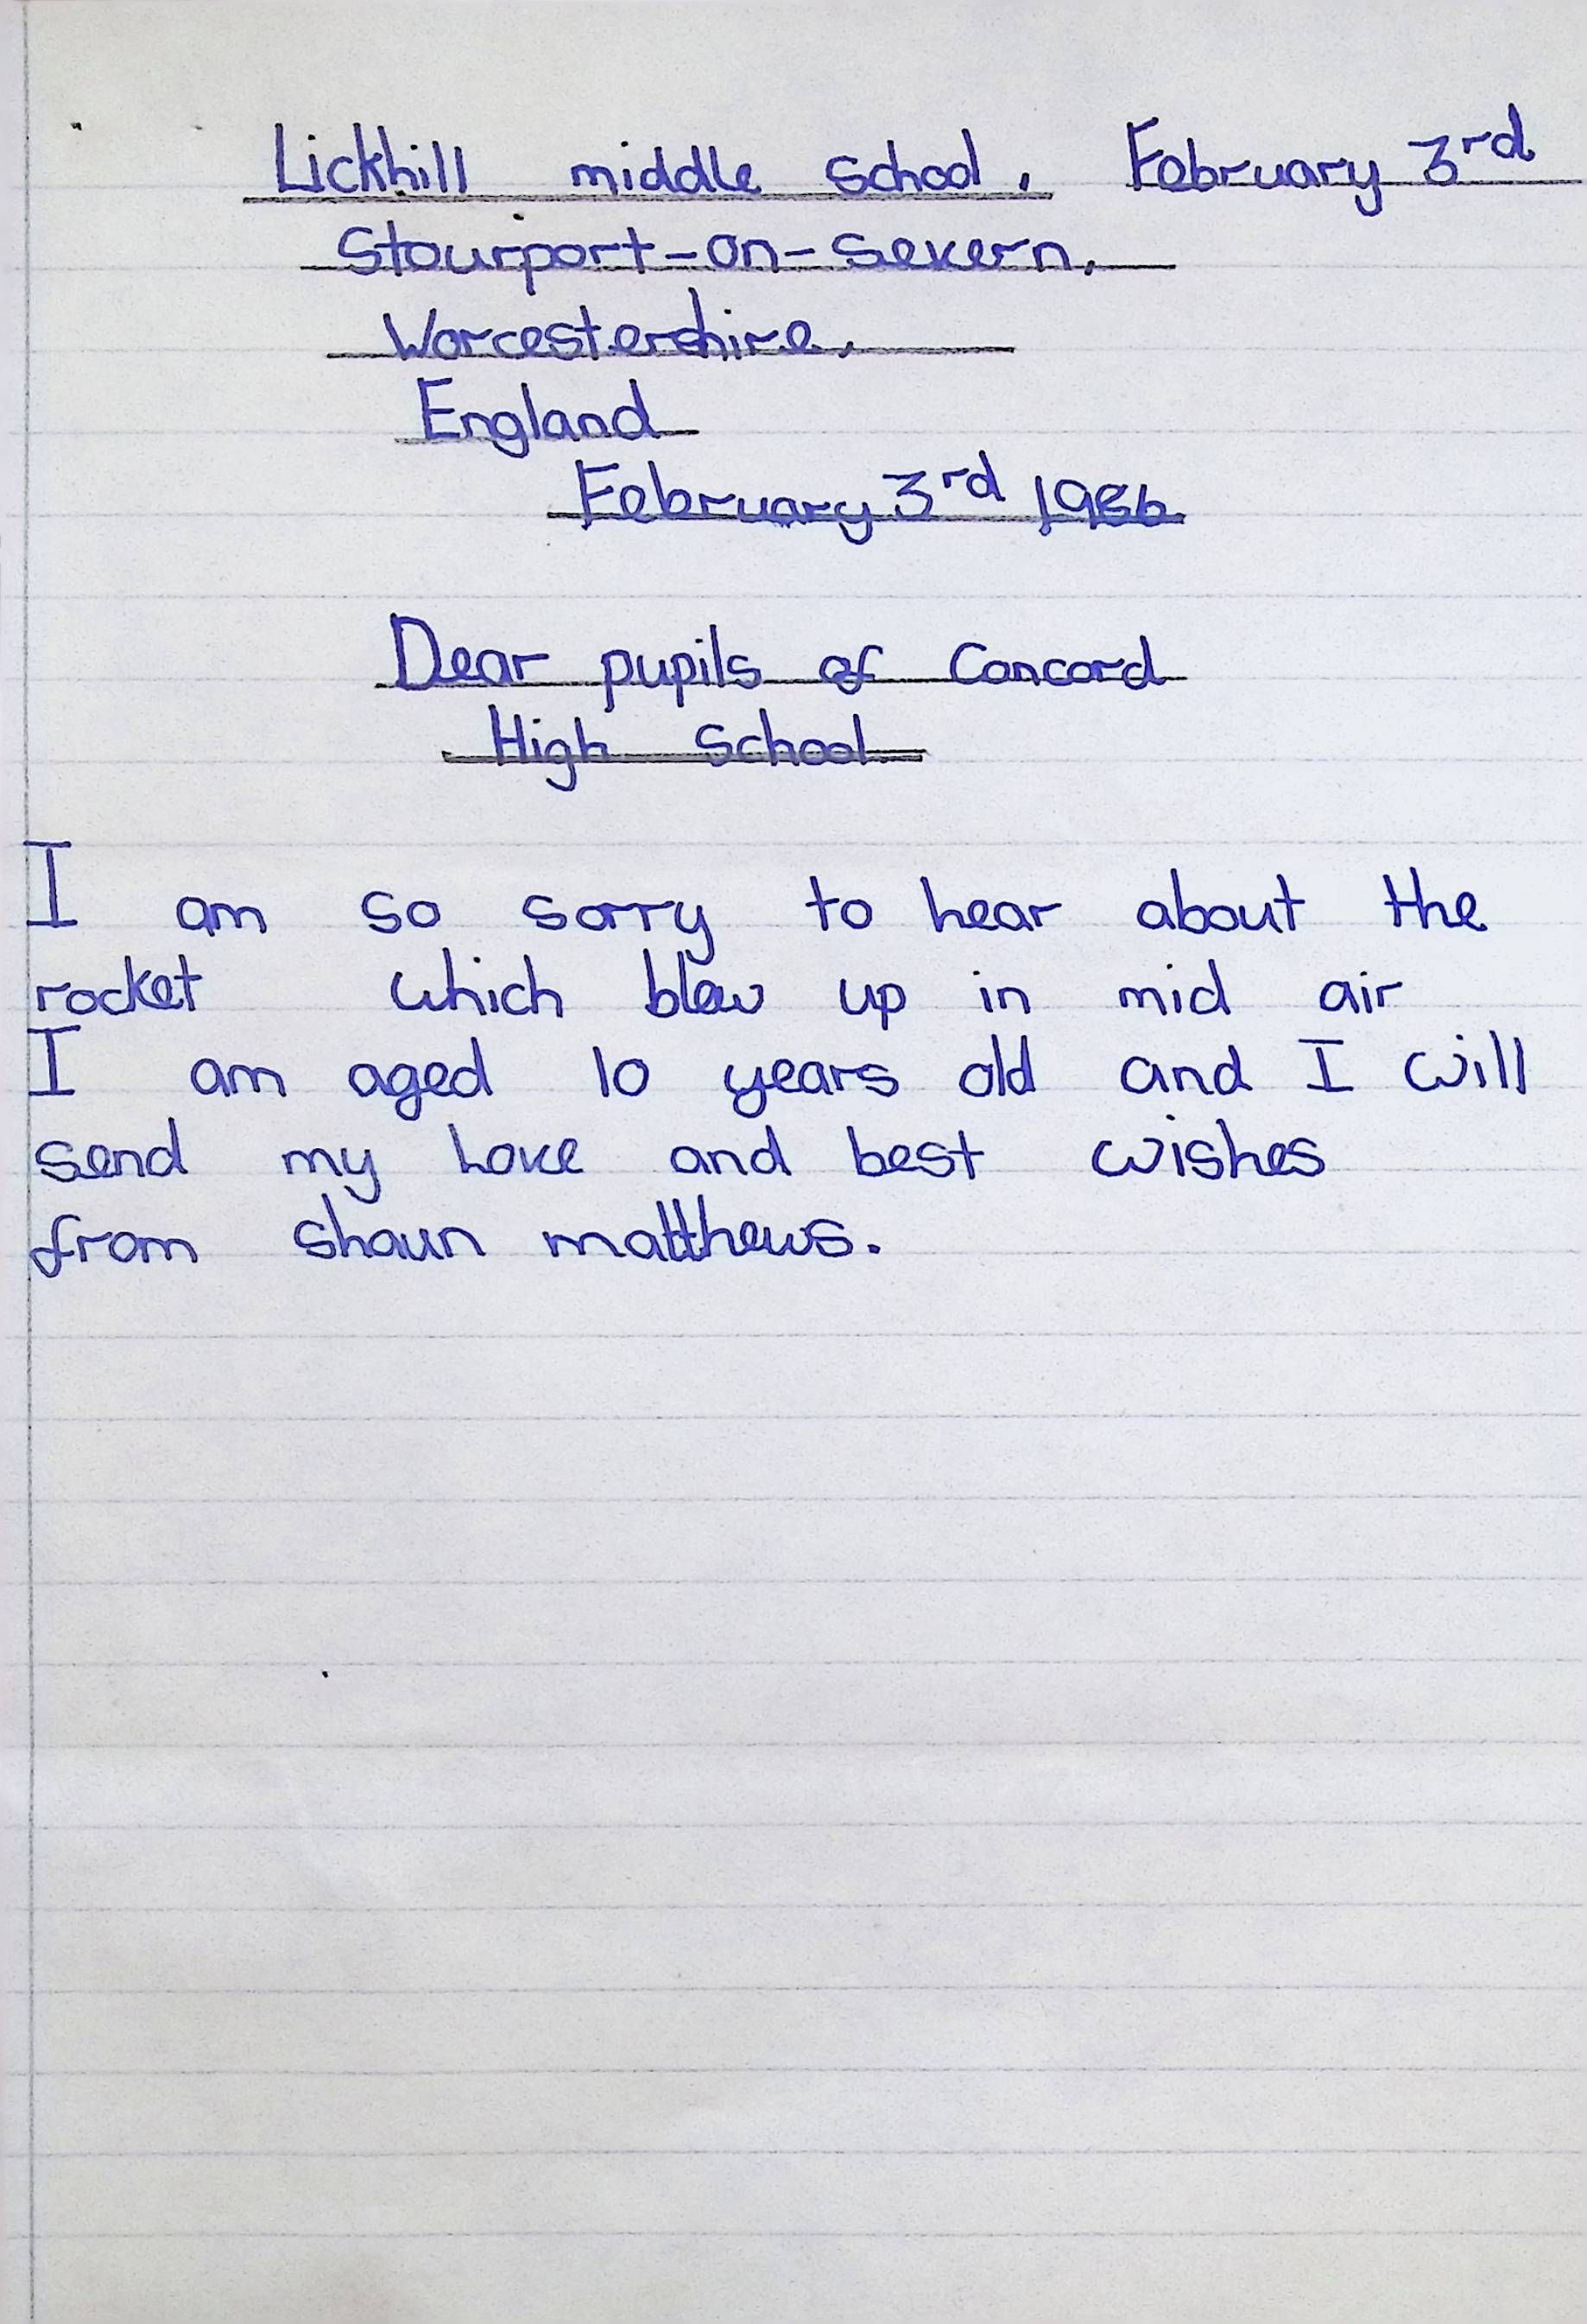 Lickhill middle school, February 3rd
Stourport-on-Severn,
Worcestershire,
England
February 3rd 1986
Dear pupils of Concord
High School
I am so sorry to hear about the
rocket which blew up in mid air
I am aged 10 years old and I will
send my Love and best wishes
from shaun matthews.